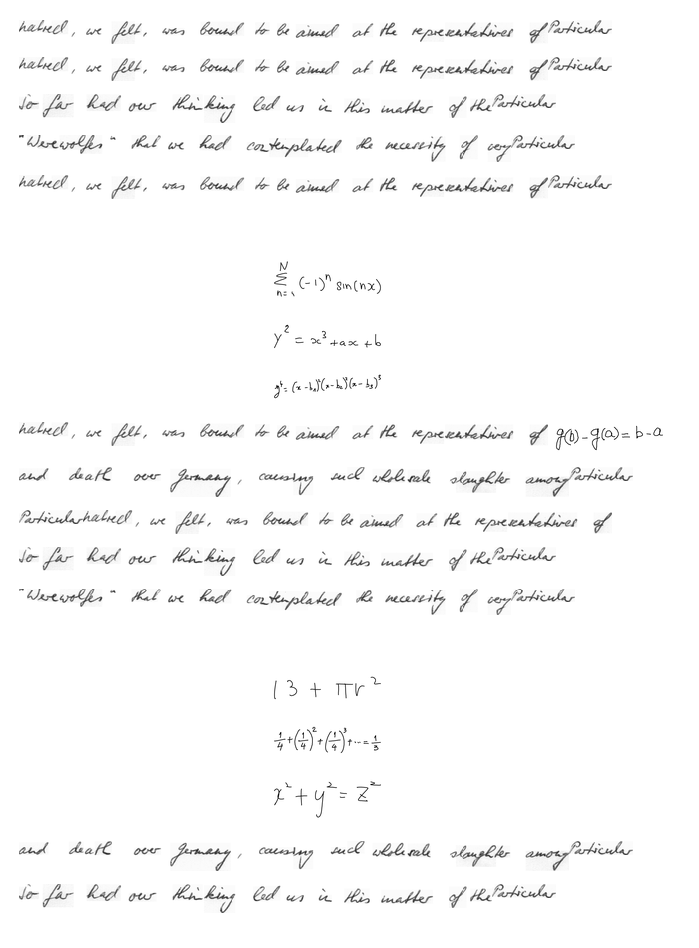 hatred, we felt, was bound to be aimed at the representatives of Particular
hatred, we felt, was bound to be aimed at the representatives of Particular
So far had our thinking led us in this matter of the Particular
"Werewolfes" that we had contemplated the necessity of very Particular
hatred, we felt, was bound to be aimed at the representatives of Particular
\sum_{n=1}^{N} (-1)^n sin(nx)
y^2 = x^3 + ax + b
y^4 = (x - b_1)^2 (x - b_2)^2 (x - b_3)^3
hatred, we felt, was bound to be aimed at the representatives of g(b) - g(a) = b - a
and death over Germany, causing such wholesale slaughter among Particular
Particular hatred, we felt, was bound to be aimed at the representatives of
So far had our thinking led us in this matter of the Particular
"Werewolfes" that we had contemplated the necessity of very Particular
13 + πr^2
1/4 + (1/4)^2 + (1/4)^3 + ... = 1/3
x^2 + y^2 = z^2
and death over Germany, causing such wholesale slaughter among Particular
So far had our thinking led us in this matter of the Particular